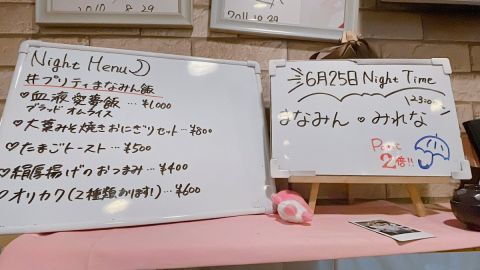 2010 8 29
2011.8.29
Night Menu
#プリティまなみん飯
♡血液定番飯 …¥1000
ブラッド オムライス
♡大葉みそ焼きおにぎりセット…¥800
♡たまごトースト…¥500
♡絹厚揚げのおつまみ…¥400
♡オリカク(2種類あります!)…¥600
6月25日 Night Time
まなみん♡みれな
Point
2倍!!